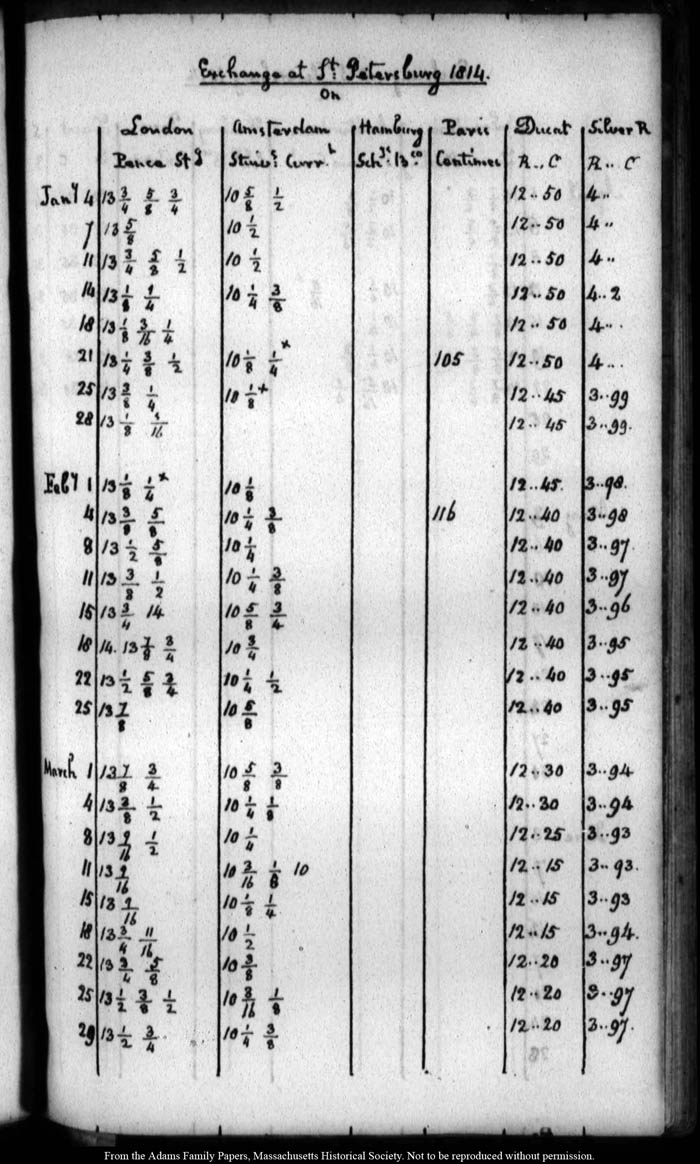 Exchange at St. Petersburg 1814.
On
London Amsterdam Hamburg Paris Ducat Silver R
Pence Stg Stuivs Currt Schs Bco Centimes R.. C R.. C
Jany 4 13 3/4 5/8 3/4 10 5/8 1/2 12..50 4..
7 13 5/8 10 1/2 12..50 4..
11 13 3/4 5/8 1/2 10 1/2 12..50 4..
14 13 1/8 1/4 10 1/4 3/8 12..50 4..2
18 13 1/8 3/16 1/4 12..50 4..
21 13 1/4 3/8 1/2 10 1/8 1/4 x 105 12..50 4..
25 13 3/8 1/4 10 1/8 x 12..45 3..99
28 13 1/8 12..45 3..99.
Feby 1 13 1/8 1/4 x 10 1/8 12..45. 3..98.
4 13 3/8 5/8 10 1/4 3/8 116 12..40 3..98
8 13 1/2 5/8 10 1/4 12..40 3..97.
11 13 3/8 1/2 10 1/4 3/8 12..40 3..97
15 13 3/4 14 10 5/8 3/4 12..40 3..96
18 14. 13 7/8 3/4 10 3/4 12..40 3..95
22 13 1/2 5/8 3/4 10 1/4 1/2 12..40 3..95
25 13 7/8 10 5/8 12..40 3..95
March 1 13 7/8 3/4 10 5/8 3/8 12..30 3..94
4 13 3/8 1/2 10 1/4 1/8 12..30 3..94
8 13 9/16 1/2 10 1/4 12..25 3..93
11 13 9/16 10 3/16 1/8 10 12..15 3..93.
15 13 9/16 10 1/8 1/4 12..15 3..93
18 13 3/4 11/16 10 1/2 12..15 3..94.
22 13 3/4 5/8 10 3/8 12..20 3..97
25 13 1/2 3/8 1/2 10 3/16 1/8 12..20 3..97
29 13 1/2 3/4 10 1/4 3/8 12..20 3..97.
From the Adams Family Papers, Massachusetts Historical Society. Not to be reproduced without permission.